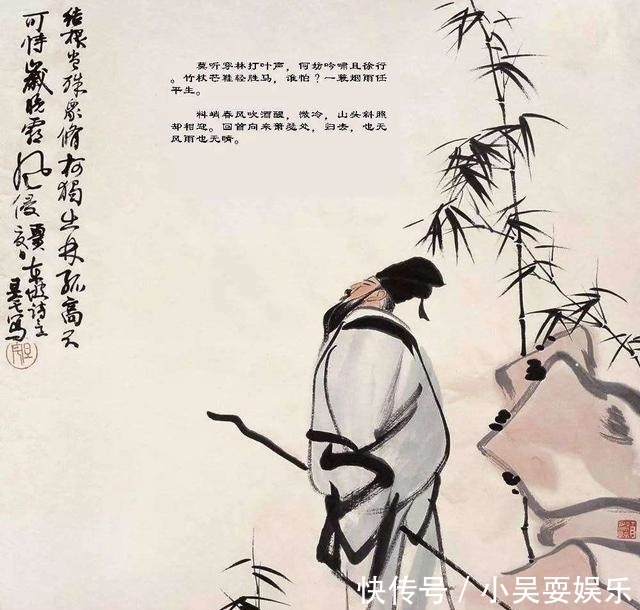 結根岂殊眾修柯獨出林孤高不
可恃歲晚霜風侵
莫听穿林打叶声，何妨吟啸且徐行
。竹杖芒鞋轻胜马，谁怕？一蓑烟雨任
平生。
料峭春风吹酒醒，微冷，山头斜照
却相迎。回首向来萧瑟处，归去，也无
风雨也无晴。
快传号／小吴耍娱乐